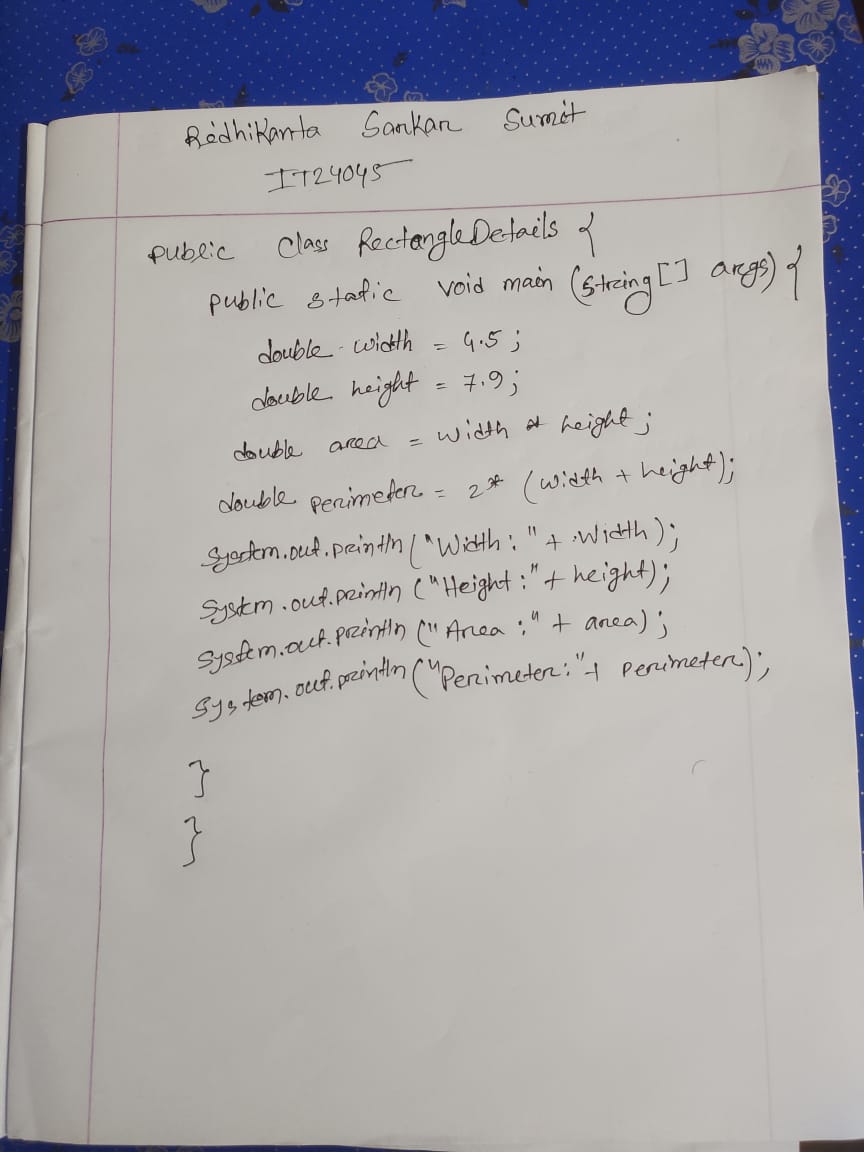 Radhikanta Sarkar Sumit
IT24045
public class RectangleDetails {
public static void main (String[] args) {
double width = 4.5;
double height = 7.9;
double area = width * height;
double perimeter = 2* (width + height);
System.out.println("Width:" + width);
System.out.println("Height:" + height);
System.out.println("Area:" + area);
System.out.println("Perimeter:" + perimeter);
}
}